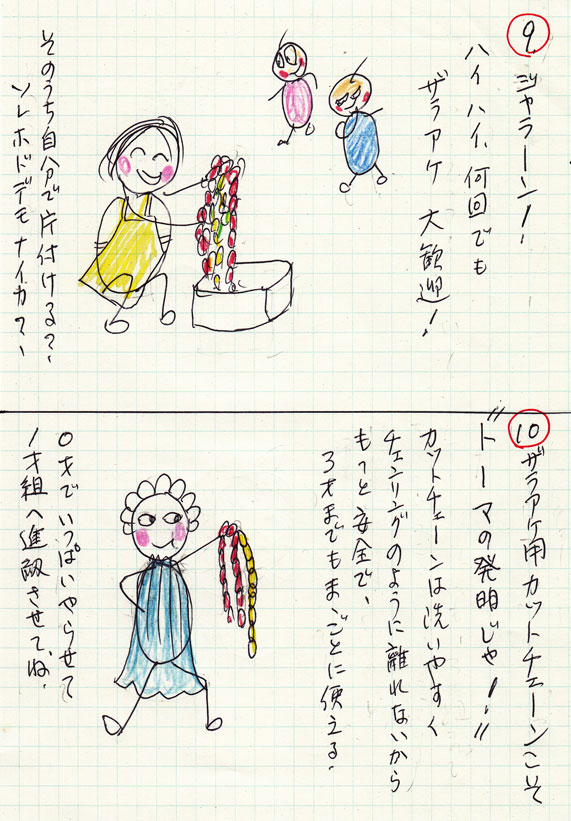 9
ジャラーン！
ハイハイ、何回でも
ザラアケ 大歓迎！
そのうち自分で片付ける？、
ソレホドデモナイカ？、
10
ザラアケ用カットチェーンこそ
"トーマの発明じゃ！"
カットチェーンは洗いやすく
チェンリングのように離れないから
もっと安全で、
3才までもまゝごとに使える.
0才でいっぱいやらせて
1才組へ進級させて、ね.